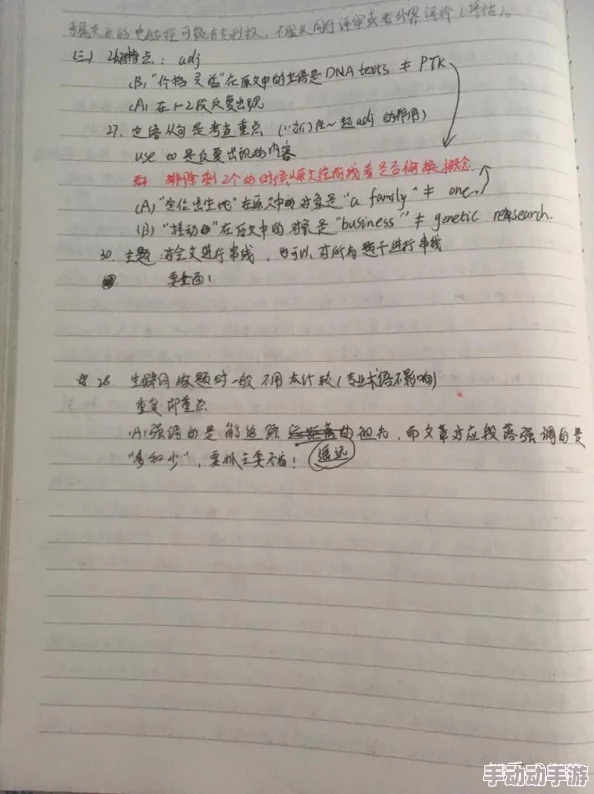 的电脑程可能有专利权，不服从同行评审或者外界评价（评估）。
(三) 26. 特点：adj
(B) "价格灵活"在原文中的主语是DNA tests ≠ PTK
(A) 在1-2段反复出现
27. 定语从句是考查重点（从句在一起adj的作用）
use to 是反复出现的内容
排除剩2个的时候原文往前找看是否偷换概念
(A) "定位出生地"在原文中的对象是"a family" ≠ one
(B) "推动"在原文中的对象是"business" ≠ genetic research.
30. 主题：对全文进行串线，也可以对所有题干进行串线
要全面！
28 生僻词做题时一般不用太计较（专业术语不影响）
重复即重点
(A) 强调的是能追踪遥远的祖先，而文章对应段落强调的是
"多和少"，要抓主要矛盾！
手动动手游